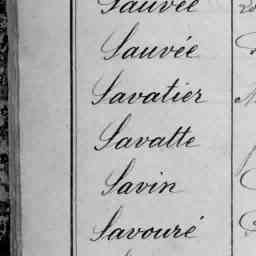 Sauvée
Sauvée
Savatier
Savatte
Savin
Savouré